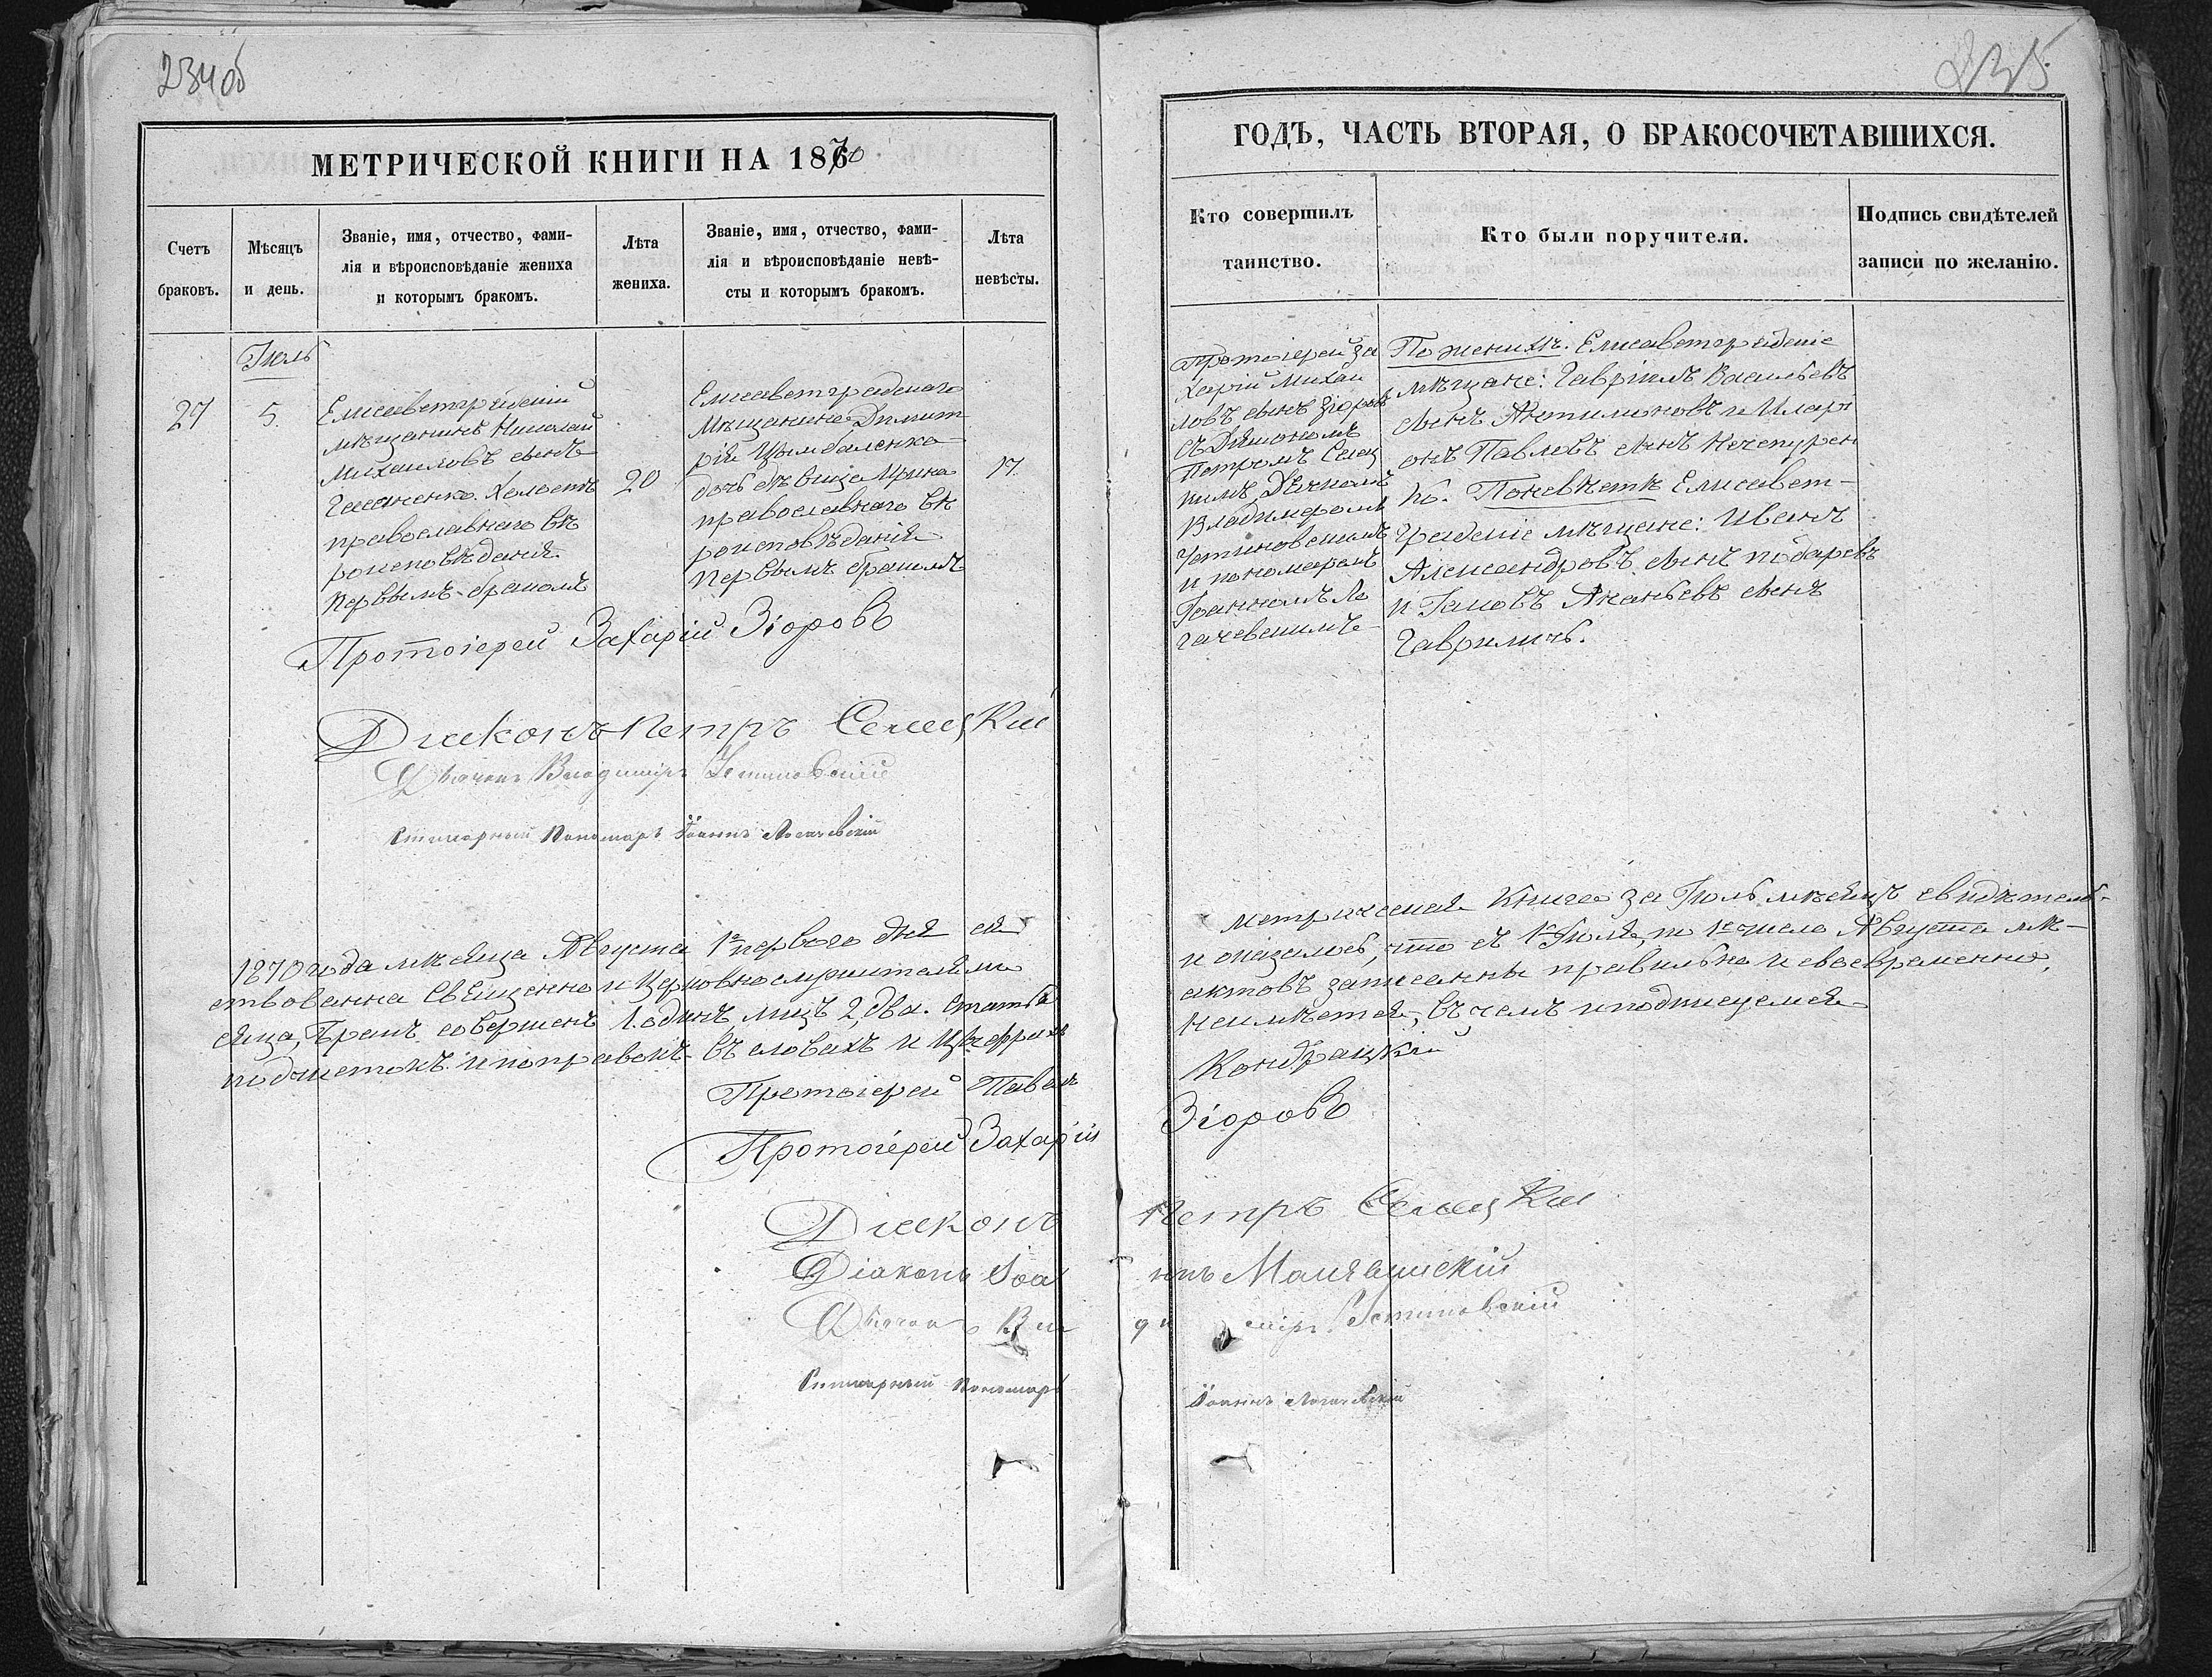 234об
МЕТРИЧЕСКОЙ КНИГИ НА 1870
Счетъ
браковъ.
Мѣсяцъ
и день.
Званіе, имя, отчество, фами-
лія и вѣроисповѣданіе жениха
и которымъ бракомъ.
Лѣта
жениха.
Званіе, имя, отчество, фами-
лія и вѣроисповѣданіе невѣ-
сты и которымъ бракомъ.
Лѣта
невѣсты.
Іюль
27
5.
Елисаветградскій
мѣщанинъ Николай
Михаиловъ сынъ
Холостъ
православнаго вѣ
роисповѣданія.
Первымъ бракомъ
20
Елисаветградскаго
Мѣщанина Димит
рія Цымбаленка
дочь дѣвица Ирина
православнаго вѣ
роисповѣданія
первымъ бракомъ
17.
Протоіерей Захарій Зіоровъ
Діаконъ Петръ Селецкій
Дьячекъ Владиміръ Устиновскій
Пономарь Іоаннъ Логачевскій
1870 года мѣсяца Августа 1го перваго дня сія
ствованна Священно и Церковнослужителями
сяца, Бракъ совершенъ 1. одинъ, лицъ 2, два. статьи
подчистокъ и поправокъ въ словахъ и цыфрахъ
Протоіерей Павелъ
Протоіерей Захарій
Діаконъ
Діаконъ Іоа
Дьячекъ Вла
Пономарь
235
ГОДЪ, ЧАСТЬ ВТОРАЯ, О БРАКОСОЧЕТАВШИХСЯ.
Кто совершилъ
таинство.
Кто были поручители.
Подпись свидѣтелей
записи по желанію.
Протоіерей За
харій Михаи
ловъ сынъ Зіоровъ
съ Діакономъ
Петромъ Селец
кимъ, Дьячкомъ
Владимеромъ
Устиновскимъ
и пономаремъ
Іоанномъ Ло
гачевскимъ
По женихѣ. Елисаветградскіе
мѣщане: Гавріилъ Васильевъ
сынъ Антимоновъ и Илари
онъ Павловъ сынъ Нечепурен
ко. По невѣстѣ Елисавет-
градскіе мѣщане: Иванъ
Александровъ сынъ
и Іаковъ Ананьевъ сынъ
Гавриличъ.
метрическая Книга за Іюль мѣсяцъ свидѣтель-
и оказалось, что съ 1го Іюля, по 1е число Августа мѣ-
актовъ записанны правильно и своевременно,
неимѣется, въ чемъ и подписуемся
Кондрацкій
Зіоровъ
Петръ Селецкій
ннъ
ди міръ Устиновскій
Іоаннъ Логачевскій